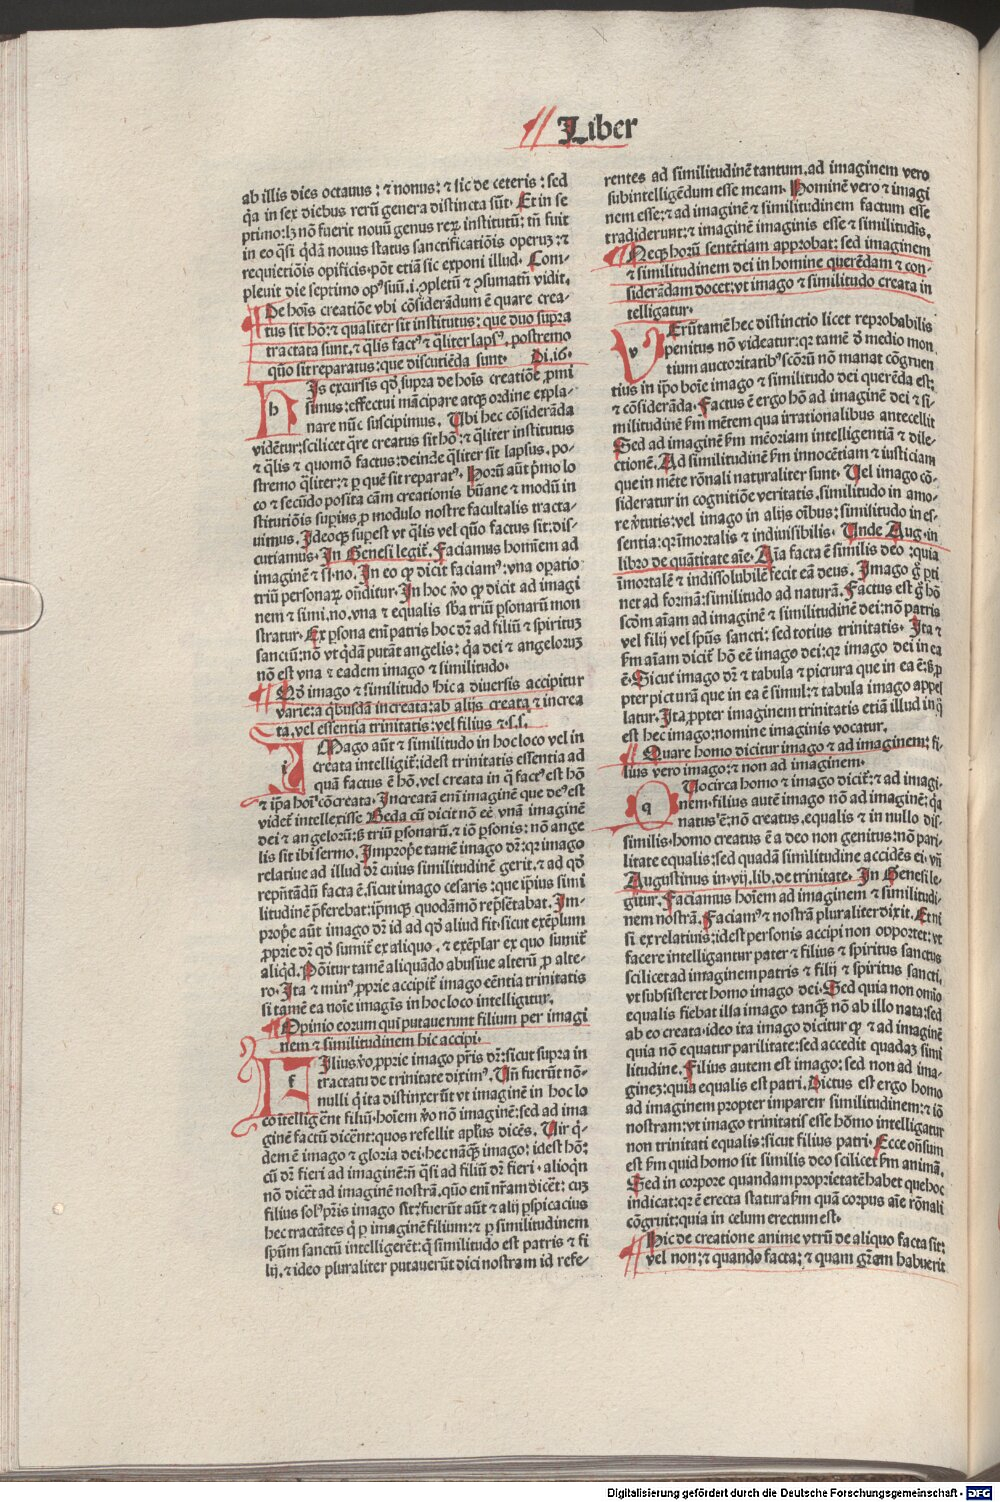 Liber
ab illis dies octauus: ⁊ nonus: ⁊ sic de ceteris: sed
q̃a in sex diebus rerũ genera distincta sũt. Et in se
ptimo: lꝫ nõ fuerit nouũ genus reꝝ institutũ: tñ fuit
in eo q̃si q̃dã nouus status sanctificatiõis operuꝫ: ⁊
requietiõis opificis. põt etiã sic exponi illud. Com-
pleuit die septimo opꝰ suũ .i. ꝯpletũ ⁊ ꝯsumatũ vidit.
De hoĩs creatiõe vbi cõsiderãdum ẽ quare crea-
tus sit hõ: ⁊ qualiter sit institutus: que duo supra
tractata sunt. ⁊ q̃lis factꝰ ⁊ q̃liter lapsꝰ. postremo
quõ sit reparatus: que discutiẽda sunt. Di. 16.
hIs excursis q̃ supra de hoĩs creatiõe ꝓmi
simus: effectui mãcipare atqꝫ ordine expla-
nare nũc suscipimus. Ubi hec cõsiderãda
vidẽtur: scilicet q̃re creatus sit hõ: ⁊ q̃liter institutus
⁊ q̃lis ⁊ quomõ factus: deinde q̃liter sit lapsus. po-
stremo q̃liter: ⁊ ꝑ quẽ sit reparatꝰ. Horũ aũt p̃mo lo
co ⁊ secũdo posita cãm creationis hũane ⁊ modũ in
stitutiõis supius ꝓ modulo nostre facultatis tracta-
uimus. Ideoqꝫ supest vt q̃lis vel quõ factus sit: dis-
cutiamus. In Genesi legit̃. Faciamus homĩem ad
imaginẽ ⁊ si. no. In eo ꝙ dicit faciamꝰ: vna oꝑatio
triũ personaꝝ oñditur. In hoc v̾o ꝙ dicit ad imagi
nem ⁊ simi. no. vna ⁊ equalis sba triũ ꝑsonarũ mon
stratur. Ex ꝑsona eni patris hoc dr̃ ad filiũ ⁊ spirituꝫ
sanctũ: nõ vt q̃dã putãt angelis: q̃a dei ⁊ angeloruꝫ
nõ est vna ⁊ eadem imago ⁊ similitudo.
Qd̾ imago ⁊ similitudo hic a diuersis accipitur
varie: a q̃busdã increata: ab alijs creata ⁊ increa
ta. vel essentia trinitatis: vel filius ⁊ s. s.
iMago aũt ⁊ similitudo in hoc loco vel in
creata intelligit̃: idest trinitatis essentia ad
quã factus ẽ hõ. vel creata in q̃ factꝰ est hõ
⁊ ip̃a hoĩ cõcreata. Increatã eni imaginẽ que deꝰ est
videt̃ intellexisse Beda cũ dicit nõ eẽ vnã imaginẽ
dei ⁊ angelorũ: ß triũ ꝑsonarũ. ⁊ iõ ꝑsonis: nõ ange
lis sit ibi sermo. Impropẽ tamẽ imago dr̃: qꝛ imago
relatiue ad illud dr̃ cuius similitudinẽ gerit. ⁊ ad qd̾
rep̃ntãdũ facta ẽ. sicut imago cesaris: que ip̃ius simi
litudinẽ p̃ferebat: ip̃mqꝫ quodãmõ rep̃sẽtabat. Im-
propẽ aũt imago dr̃ id ad qd̾ aliud fit. sicut exẽplum
ꝓprie dr̃ qd̾ sumit̃ ex aliquo. ⁊ exẽplar ex quo sumit̃
aliq̃d. Põitur tamẽ aliquãdo abusiue alterũ ꝓ alte-
ro. Ita ⁊ minꝰ ꝓprie accipit̃ imago eẽntia trinitatis
si tamẽ ea noĩe imagĩs in hoc loco intelligitur.
Opinio eorum qui putauerunt filium per imagi
nem ⁊ similitudinem hic accipi.
fIlius v̾o ꝓprie imago p̃ris dr̃: sicut supra in
tractatu de trinitate diximꝰ. Uñ fuerũt nõ-
nulli q̃ ita distinxerũt vt imaginẽ in hoc lo
co ĩtelligẽnt filiũ. hoĩem v̾o nõ imaginẽ: sed ad ima
ginẽ factũ dicẽnt: quos refellit apĺus dicẽs. Uir q̃-
dem ẽ imago ⁊ gloria dei. hec nãqꝫ imago: idest hõ:
cũ dr̃ fieri ad imaginẽ: ñ q̃si ad filiũ dr̃ fieri. alioq̃n
nõ dicẽt ad imaginẽ nostrã. quõ eni nr̃am dicẽt: cuꝫ
filius solꝰ p̃ris imago sit: fuerũt aũt ⁊ alij ꝑspicacius
hec tractãtes q̃ ꝑ imaginẽ filium: ⁊ ꝑ similitudinem
sp̃um sanctũ intelligerẽt: q̃ similitudo est patris ⁊ fi
lij. ⁊ ideo pluraliter putauerũt dici nostram id refe-
rentes ad similitudinẽ tantum. ad imaginem vero
subintelligẽdum esse meam. Hominẽ vero ⁊ imagi
nem esse: ⁊ ad imaginẽ ⁊ similitudinem factum esse
tradiderunt: ⁊ imaginẽ imaginis esse ⁊ similitudĩs.
Neqꝫ horũ sentẽtiam approbat: sed imaginem
⁊ similitudinem dei in homine querẽdam ⁊ con-
siderãdam docet: vt imago ⁊ similitudo creata in
telligatur.
vErũtamẽ hec distinctio licet reprobabilis
penitus nõ videatur: qꝛ tamẽ d̾ medio mon
tium auctoritatibꝰ scõrũ nõ manat cõgruen
tius in ip̃o hoĩe imago ⁊ similitudo dei querẽda est:
⁊ cõsiderãda. Factus ẽ ergo hõ ad imaginẽ dei ⁊ si-
militudinẽ ẜm mẽtem qua irrationalibus antecellit
Sed ad imaginẽ ẜm mẽoriam intelligentiã ⁊ dile-
ctionẽ. Ad similitudinẽ ẜm innocẽtiam ⁊ iusticiam
que in mẽte rõnali naturaliter sunt. Uel imago cõ-
sideratur in cognitiõe veritatis. similitudo in amo-
re v̾tutis: vel imago in alijs oĩbus: similitudo in es-
sentia: qꝛ ĩmortalis ⁊ indiuisibilis. Unde Aug. in
libro de quãtitate aĩe. Aĩa facta ẽ similis deo: quia
ĩmortalẽ ⁊ indissolubilẽ fecit eã deus. Imago g̃ ꝑti
net ad formã: similitudo ad naturã. Factus est g̃ hõ
scđm aĩam ad imaginẽ ⁊ similitudinẽ dei: nõ patris
vel filij vel spũs sancti: sed totius trinitatis. Ita ⁊
ẜm aĩam dicit̃ hõ eẽ imago dei: qꝛ imago dei in ea
ẽ. Sicut imago dr̃ ⁊ tabula ⁊ pictura que in ea ẽ: ß ꝓ
pter picturã que in ea ẽ simul: ⁊ tabula imago appel
latur. Ita ꝓpter imaginem trinitatis etiã illud in q̃
est hec imago: nomine imaginis vocatur.
Quare homo dicitur imago ⁊ ad imaginem: fi-
lius vero imago: ⁊ non ad imaginem.
qUocirca homo ⁊ imago dicit̃: ⁊ ad imagi-
nem. filius autẽ imago nõ ad imaginẽ: q̃a
natusꝰ ẽ: nõ creatus. equalis ⁊ in nullo dis-
similis. homo creatus ẽ a deo non genitus: nõ pari-
litate equalis: sed quadã similitudine accidẽs ei. vñ
Augustinus in .vij. lib. de trinitate. In Genesi le-
gitur. Faciamus hoĩem ad imaginem ⁊ similitudi-
nem nostrã. Faciamꝰ ⁊ nostrã pluraliter dixit. Et ni
si ex relatiuis: idest personis accipi non opportet: vt
facere intelligantur pater ⁊ filius ⁊ spiritus sanctus
scilicet ad imaginem patris ⁊ filij ⁊ spiritus sancti.
vt subsisteret homo imago dei. Sed quia non omĩo
equalis fiebat illa imago tanqꝫ̃ nõ ab illo nata: sed
ab eo creata. ideo ita imago dicitur ꝙ ⁊ ad imaginẽ
quia nõ equatur parilitate: sed accedit quadaꝫ simi
litudine. Filius autem est imago: sed non ad ima-
gineꝫ: quia equalis est patri. Dictus est ergo homo
ad imaginem propter imparem similitudinem: ⁊ iõ
nostram: vt imago trinitatis esse hõmo intelligatur
non trinitati equalis: sicut filius patri. Ecce oñsum
est ẜm quid homo sit similis deo scilicet ẜm animã.
Sed in corpore quandam proprietatẽ habet que hoc
indicat: qꝛ ẽ erecta statura ẜm quã corpus aĩe rõnali
cõgruit: quia in celum erectum est.
Hic de creatione anime vtrũ de aliquo facta sit:
vel non: ⁊ quando facta: ⁊ quam gr̃am habuerit
Digitalisierung gefördert durch die Deutsche Forschungsgemeinschaft - DFG